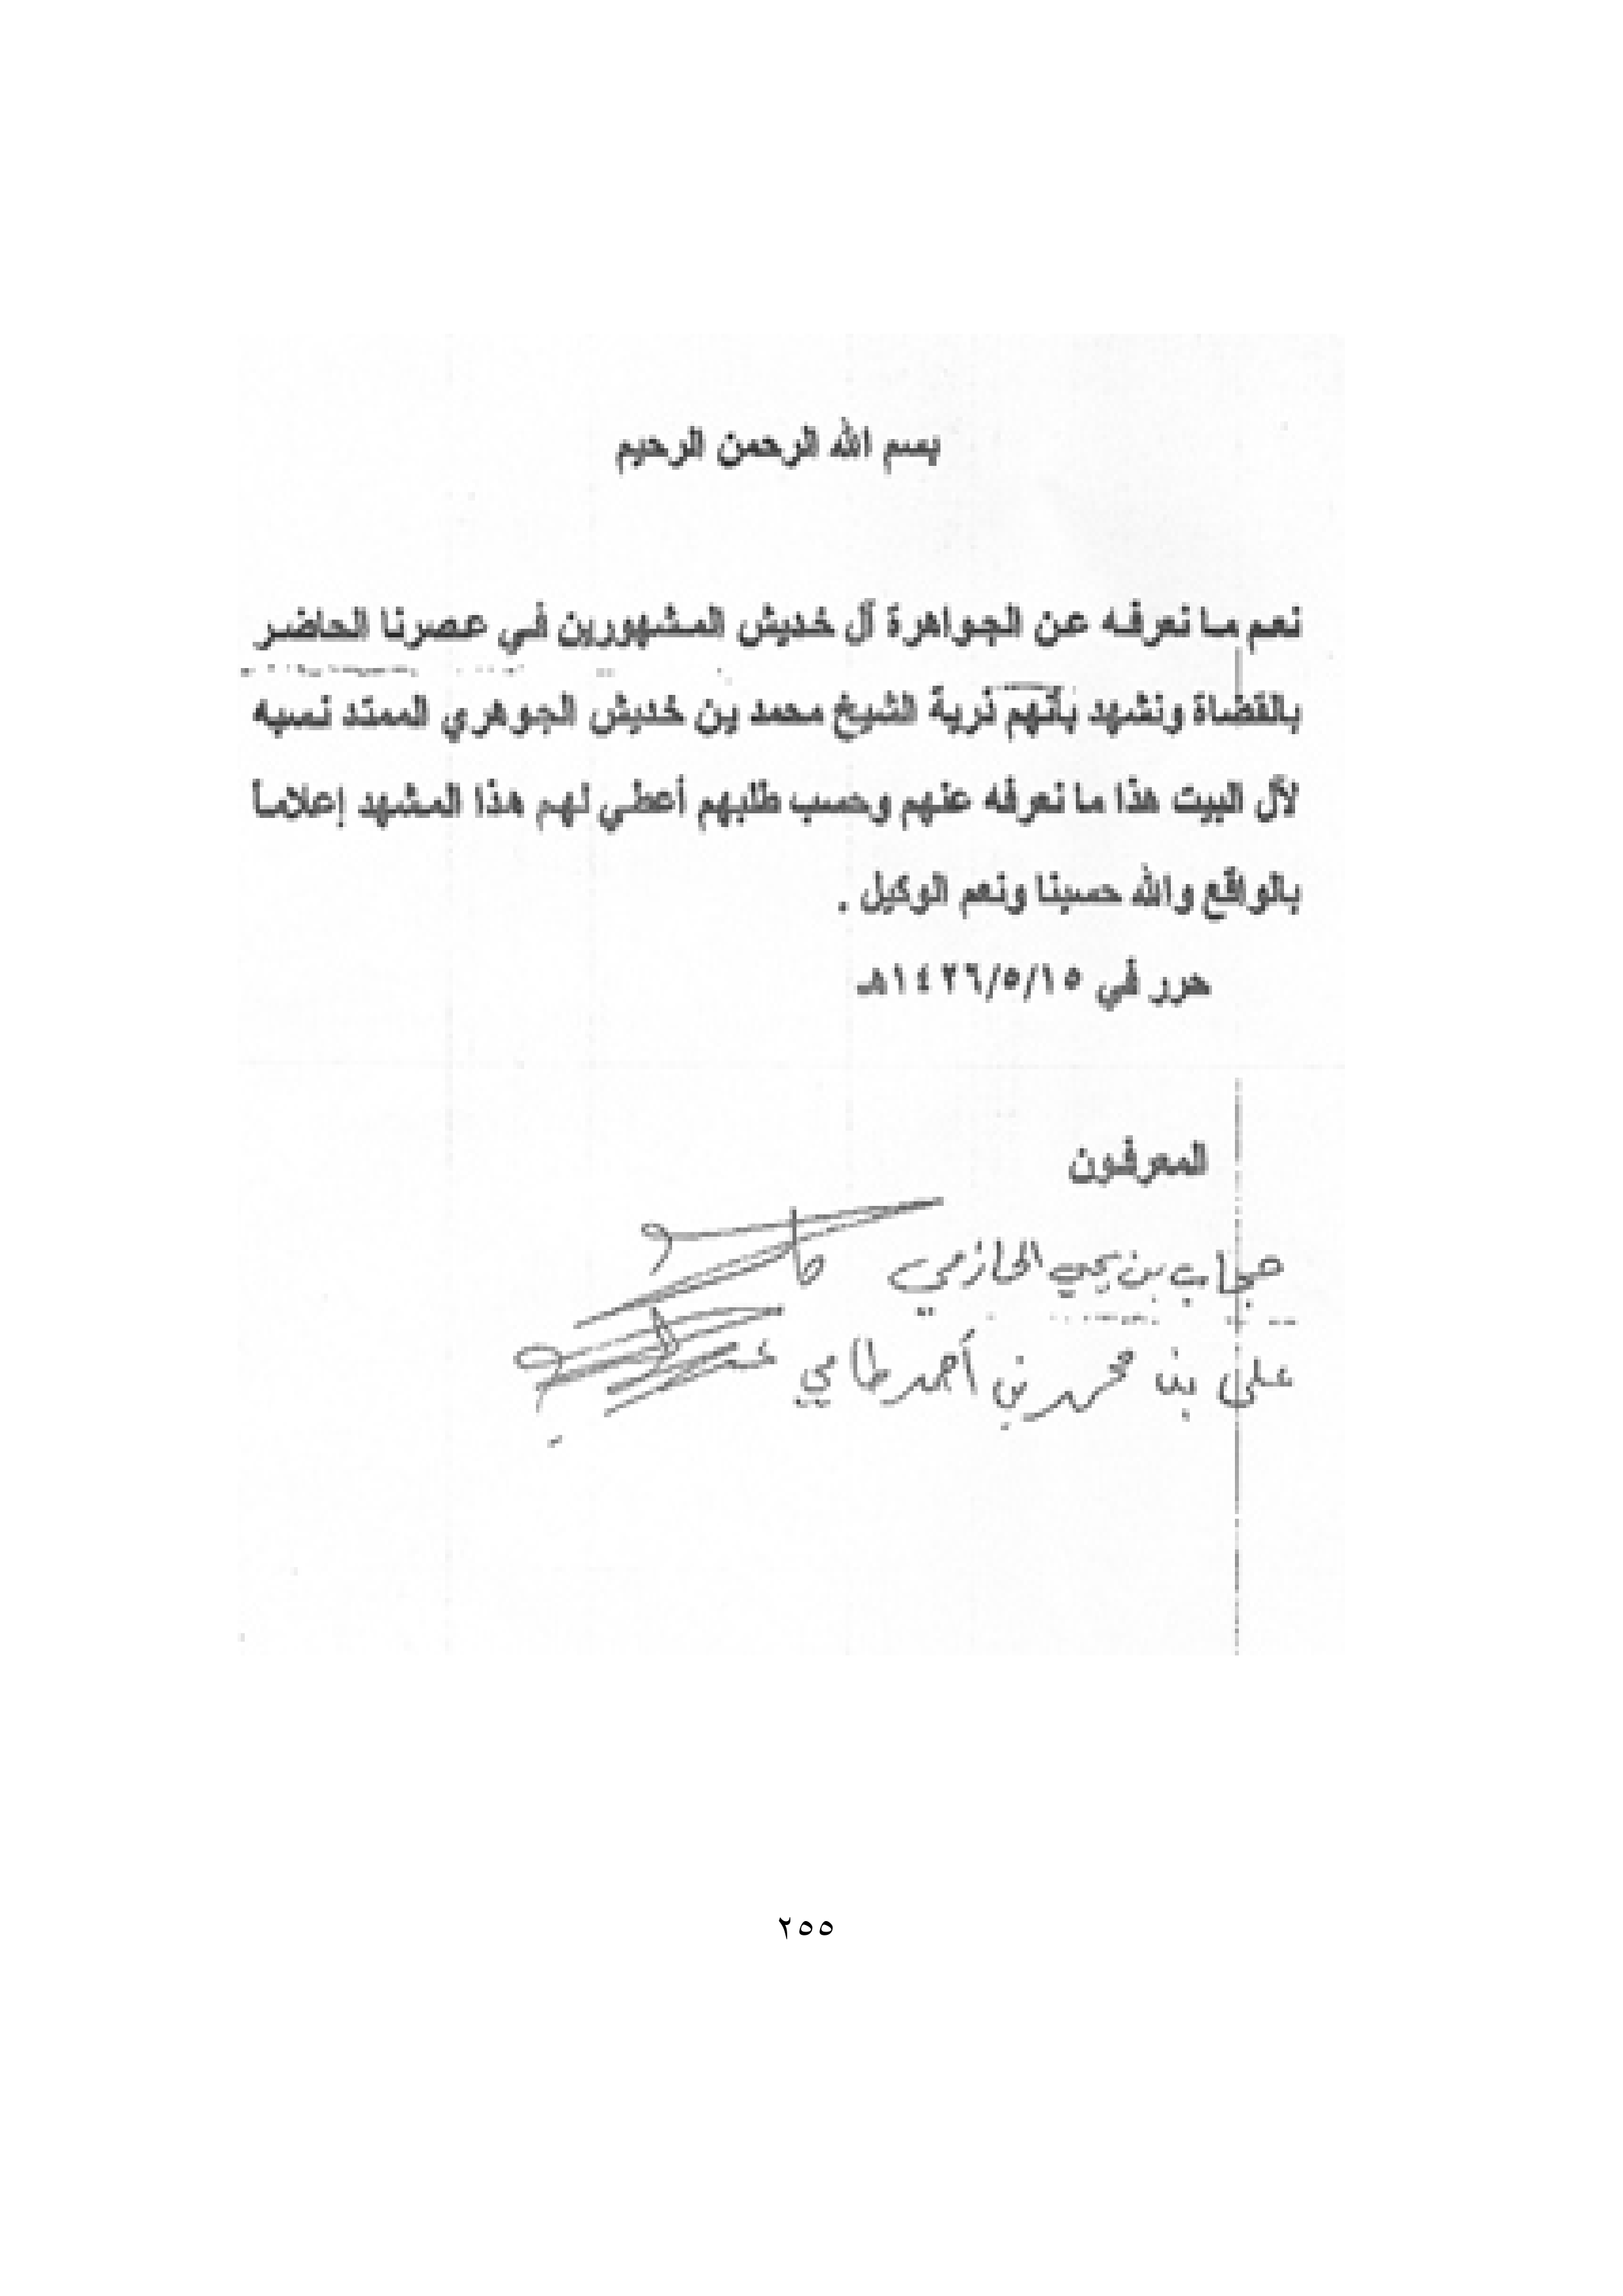 بسم الله الرحمن الرحيم
نعم ما نعرفه عن الجواهرة آل خديش المشهورين في عصرنا الحاضر
بالقضاة ونشهد بأنهم ذرية الشيخ محمد بن خديش الجوهري الممتد نسبه
لآل البيت هذا ما نعرفه عنهم وحسب طلبهم أعطي لهم هذا المشهد إعلاماً
بالواقع والله حسبنا ونعم الوكيل .
حرر في ١٤٢٦/٥/١٥هـ
المعرفون
حجاب بن يحيى الحازمي
علي بن محمد بن أحمد طامي
٢٥٥